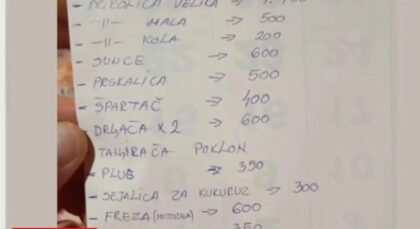 - PRIKOLICA VELIKA →
-"- MALA → 500
-"- KOLA → 200
- SUNCE → 600
- PRSKALICA → 500
- ŠPARTAČ → 400
- DRLJAČA X 2 → 600
- TANJIRAČA POKLON
- PLUG → 350
- SEJALICA ZA KUKURUZ → 300
- FREZA (MOTOZNA) → 600
350